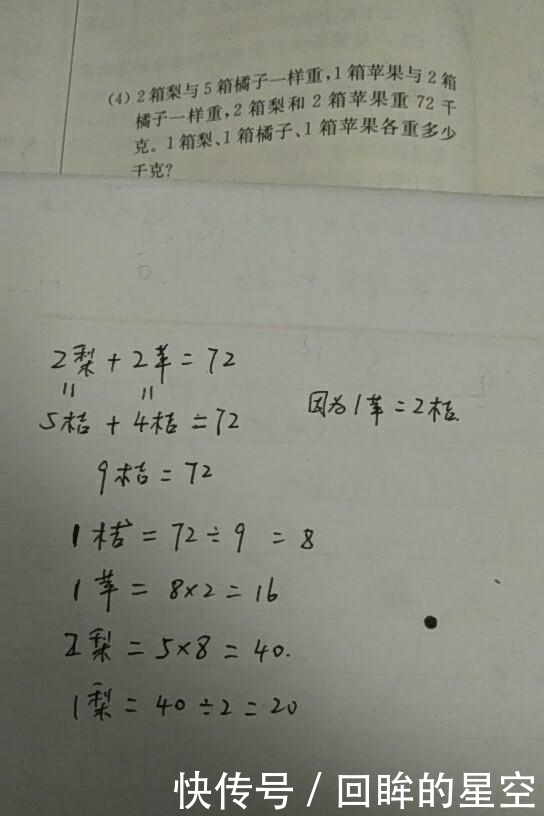 (4) 2箱梨与5箱橘子一样重,1箱苹果与2箱
橘子一样重,2箱梨和2箱苹果重72千
克。1箱梨、1箱橘子、1箱苹果各重多少
千克?
2梨+2苹=72
5桔+4桔=72
因为1苹=2桔.
9桔=72
1桔=72÷9=8
1苹=8×2=16
2梨=5×8=40.
1梨=40÷2=20
快传号/回眸的星空